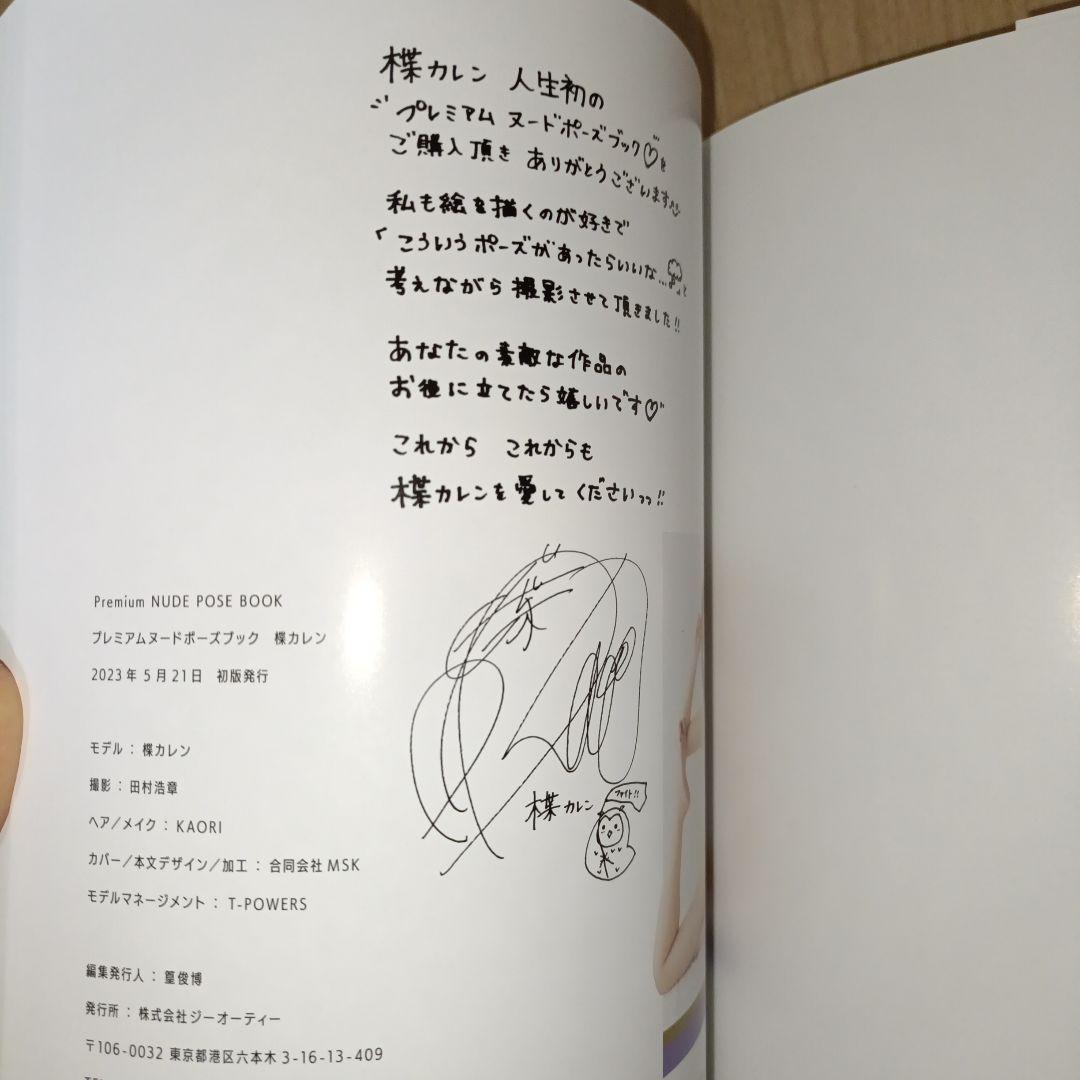 楪カレン 人生初の
プレミアム ヌードポーズブック♡を
ご購入頂き ありがとうございます
私も絵を描くのが好きで
こういうポーズがあったらいいな...と
考えながら撮影させて頂きました!!
あなたの素敵な作品の
お役に立てたら嬉しいです♡
これから これからも
楪カレンを愛してくださいっっ!!
楪カレン
ファイト!!
Premium NUDE POSE BOOK
プレミアムヌードポーズブック 楪カレン
2023年5月21日 初版発行
モデル：楪カレン
撮影：田村浩章
ヘア/メイク：KAORI
カバー/本文デザイン/加工：合同会社MSK
モデルマネージメント：T-POWERS
編集発行人：篁俊博
発行所：株式会社ジーオーティー
〒106-0032 東京都港区六本木3-16-13-409